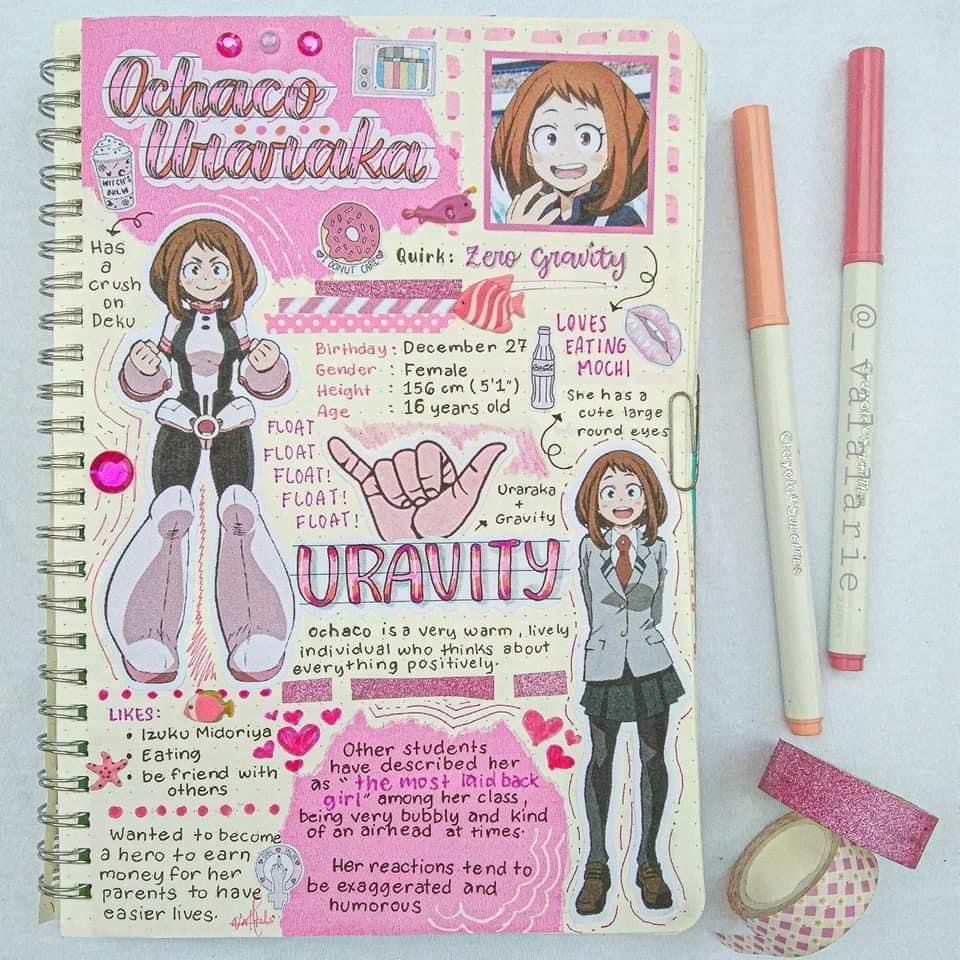 Ochaco
Uraraka
WITCH'S
BREW
I DONUT CARE
Has
a
crush
on
Deku
Quirk: Zero Gravity
LOVES
EATING
MOCHI
Birthday: December 27
Gender : Female
Height : 156 cm (5'1")
Age : 16 years old
She has a
cute large
round eyes
FLOAT
FLOAT
FLOAT!
FLOAT!
FLOAT!
Uraraka
+
Gravity
URAVITY
Ochaco is a very warm, lively
individual who thinks about
everything positively.
LIKES:
• Izuku Midoriya
• Eating
• be friend with
others
Wanted to become
a hero to earn
money for her
parents to have
easier lives.
Other students
have described her
as "the most laid back
girl" among her class,
being very bubbly and kind
of an airhead at times.
Her reactions tend to
be exaggerated and
humorous
Crayola Supertips
@_valalarie